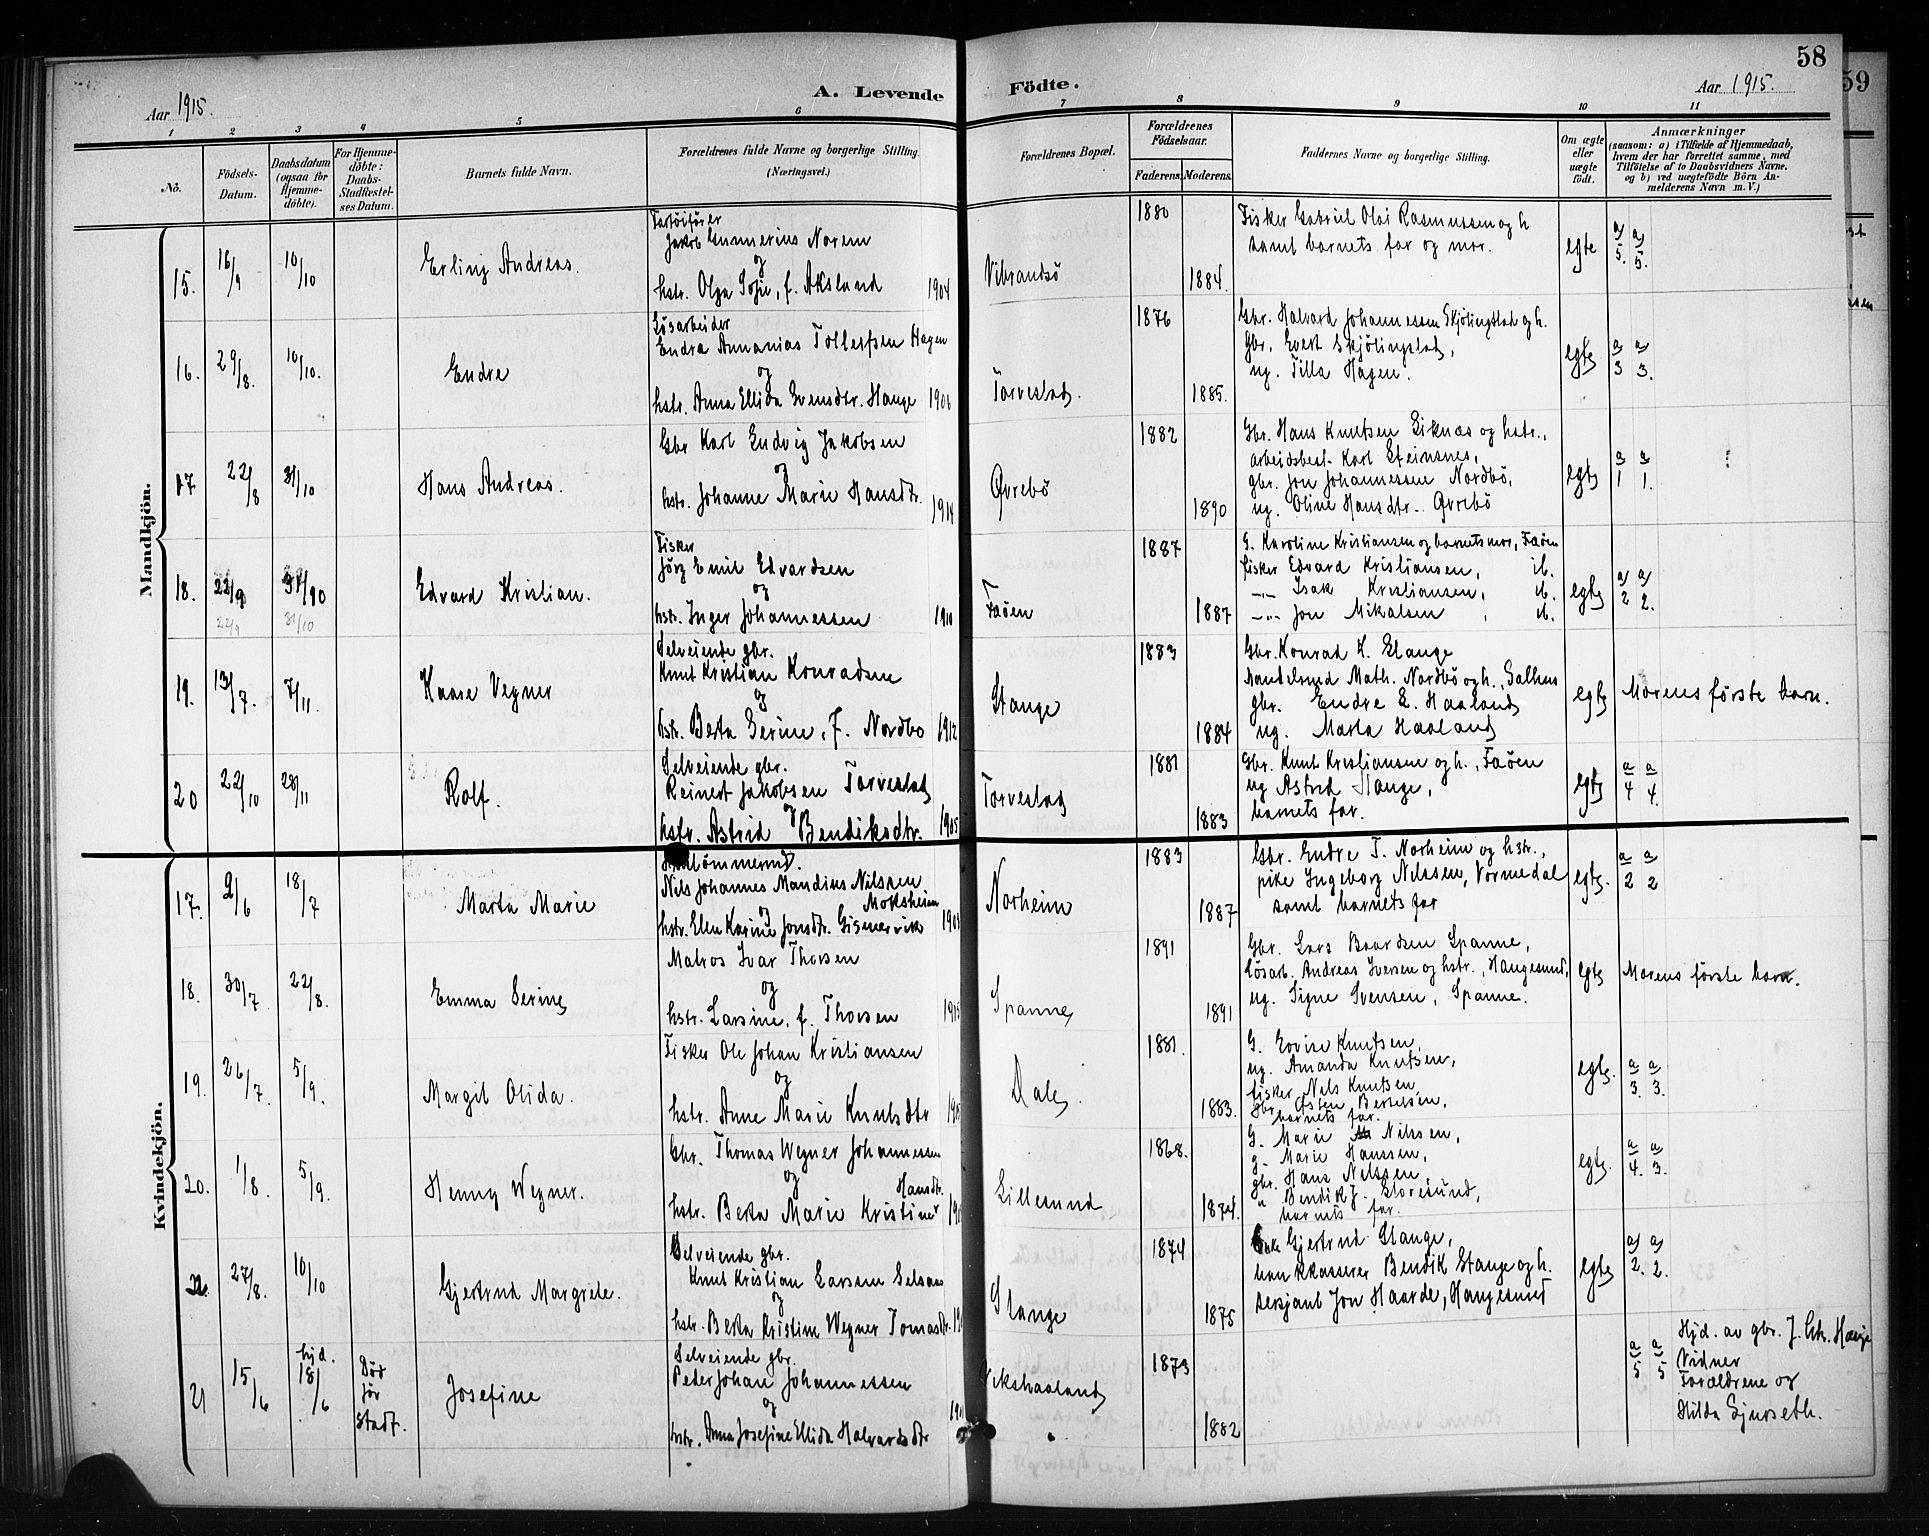 58
59
Aar 1915.
A. Levende
Födte.
Aar 1915.
1 2 3 4 5 6 7 8 9 10 11
No.
Födsels-Datum.
Daabsdatum (ogsaa for Hjemme-döbte).
For Hjemme-döbte: Daabs-Stadfæstel-ses Datum.
Barnets fulde Navn.
Forældrenes fulde Navne og borgerlige Stilling.
(Næringsvei.)
Forældrenes Bopæl.
Forældrenes Födselsaar.
Faderens. Moderens.
Faddernes Navne og borgerlige Stilling.
Om ægte eller uægte født.
Anmærkninger
(saasom: a) i Tilfælde af Hjemmedaab,
hvem der har forrettet samme, med
Tilföielse af to Daabsvidners Navne,
og b) ved uægtefödte Börn An-
melderens Navn m. V.)
Mandkjön.
15. 16/9 10/10 Erling Andreas.
Fartöiförer
Jakob Gunnerius Norem
og
hstr. Olga Sofie, f. Aksland 1904
Vibrandsö
1880
1884.
Fisker Gabriel Olai Rasmussen og h
samt barnets far og mor.
egte
a/5. a/5.
16. 29/8. 10/10. Endre
Lösarbeider
Endre Annanias Tollefsen Hagen
og
hstr. Anna Ellida Svensdtr. Hauge 1906
Torvestad.
1876
1885.
Gbr. Halvard Johannessen Skjölingstad og h.
Gbr. Evert Skjölingstad,
ug. Tilla Hagen.
egte
a/3 a/3.
17 22/8 31/10 Hans Andreas.
Gbr Karl Ludvig Jakobsen
og
hstr. Johanne Marie Hansdtr. 1914
Øvrebö
1882
1890
Gbr. Hans Knutsen Eiknæs og hstr.,
arbeidsbest. Karl Steinsnes,
gbr. Jon Johannessen Nordbö,
ug. Oline Hansdtr. Øvrebö
egte
a/1 a/1.
18. 22/9 31/10 Edvard Kristian.
22/9 31/10
Fisker
Jörg Emil Edvardsen
og
hstr. Inger Johannessen 1910
Faöen
1887
1887
G. Karoline Kristiansen og barnets mor, Faöen
fisker Edvard Kristiansen, ib.
-"- Isak Kristiansen, ib.
-"- Jon Mikalsen, ib.
egte
a/2 a/2.
19. 13/7. 7/11. Kaare Vegner
Selveiende gbr.
Knut Kristian Konradsen
og
hstr. Berta Serine, f. Nordbo 1912
Stange
1883
1884
Gbr. Konrad K. Stange
Handelsmd Math. Nordbö og h., Salhus
gbr. Endre L. Haaland
ug. Marta Haaland
egte
Morens förste barn.
20 22/10 28/11 Rolf.
Selveiende gbr.
Reinert Jakobsen Torvestad
og
hstr. Astrid Bendiksdtr. 1905
Torvestad
1881
1883
Gbr. Knut Kristiansen og h., Faöen
ug Astrid Hauge,
barnets far.
egte
a/4 a/4.
Kvindekjön.
17. 2/6 18/7 Marta Marie
tömmermd.
Nils Johannes Mandius Nilssen
Moksheim
og
hstr. Ellen Karine Jonsdtr. Gismervik
Norheim
1883
1887
Gbr. Endre T. Norheim og hstr.,
pike Ingeborg Nilssen, Vormedal
samt barnets far
egte.
a/2 a/2
18. 30/7 22/8. Emma Serine
Matros Ivar Thorsen
og
hstr. Larsine, f. Thorsen 1915
Spanne
1891
1891
Gbr. Lars Baardsen Spanne,
Lösarb. Andreas Iversen og hstr., Haugesund,
ug. Signe Svensen, Spanne.
egte
Morens förste barn.
19. 26/7. 5/9. Margit Olida.
Fisker Ole Johan Kristiansen
og
hstr. Anne Marie Knutsdtr
Dale
1881.
1883.
G. Lovise Knutsen,
ug. Amanda Knutsen,
fisker Nils Knutsen
Gbr. Osten Bertelsen,
barnets far.
egte.
a/3. a/3.
20. 1/8. 5/9. Henny Wegner.
Gbr. Thomas Wegner Johannessen
og
Hansdtr.
hstr. Berta Marie Kristine
Lillesund
1868.
1874.
G. Marie Nilssen,
g. Marie Hanssen,
gbr. Hans Nilssen,
" Bendik J. Storesund,
barnets far.
egte.
a/4. a/3.
27/8. 10/10 Gjertrud Margrete.
Selveiende gbr.
Knut Kristian Larsen
og
hstr. Berta Kristine Wegner Tomasdtr.
Stange
1874
1875
Enke Gjertrud Stange,
bankkasserer Bendik Stange og h.
sersjant Jon Haarde, Haugesund
egte
a/2. a/2.
21 15/6 hjd. 18/6 Död
för
stadf.
Josefine
Selveiende gbr.
Peder Johan Johannessen
og
hstr. Anna Josefine Ellida Halvardsdtr
Vikshaaland
1873
1882
a/5 a/5
Hjd. av gbr. J. Chr. Hauge
Vidner
Foreldrene og
Hilda Gjurseth.